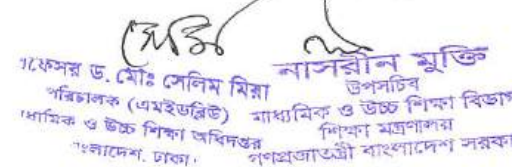 প্রফেসর ড. মোঃ সেলিম মিয়া
পরিচালক (এমইডব্লিউ)
মাধ্যমিক ও উচ্চ শিক্ষা অধিদপ্তর
বাংলাদেশ, ঢাকা।
নাসরীন মুক্তি
উপসচিব
মাধ্যমিক ও উচ্চ শিক্ষা বিভাগ
শিক্ষা মন্ত্রণালয়
গণপ্রজাতন্ত্রী বাংলাদেশ সরকার